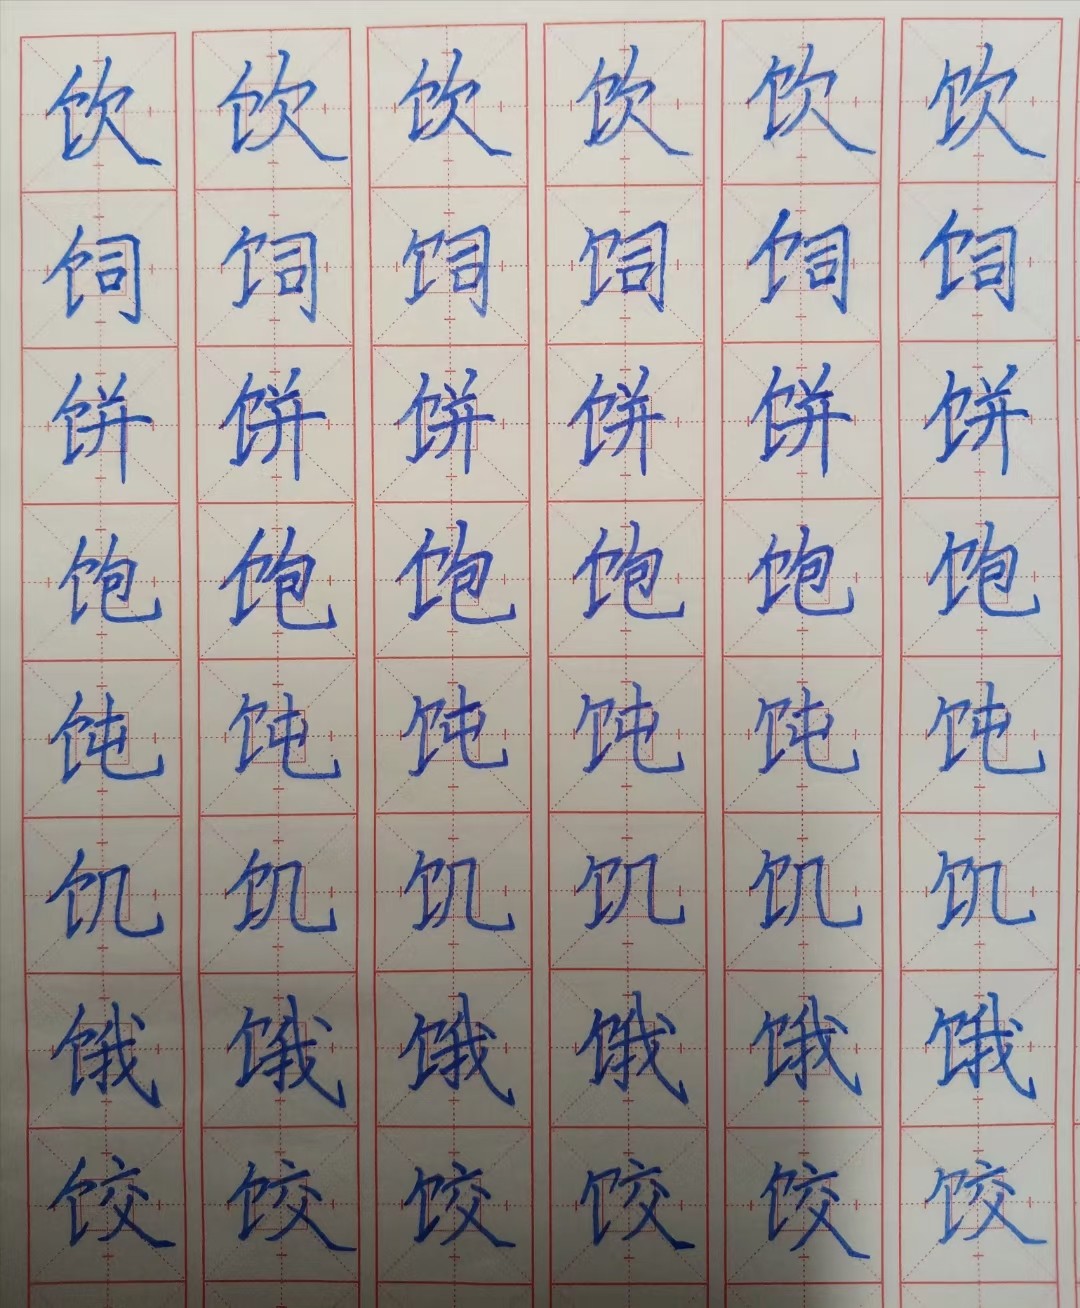 饮饮饮饮饮饮
饲饲饲饲饲饲
饼饼饼饼饼饼
饱饱饱饱饱饱
饨饨饨饨饨饨
饥饥饥饥饥饥
饿饿饿饿饿饿
饺饺饺饺饺饺